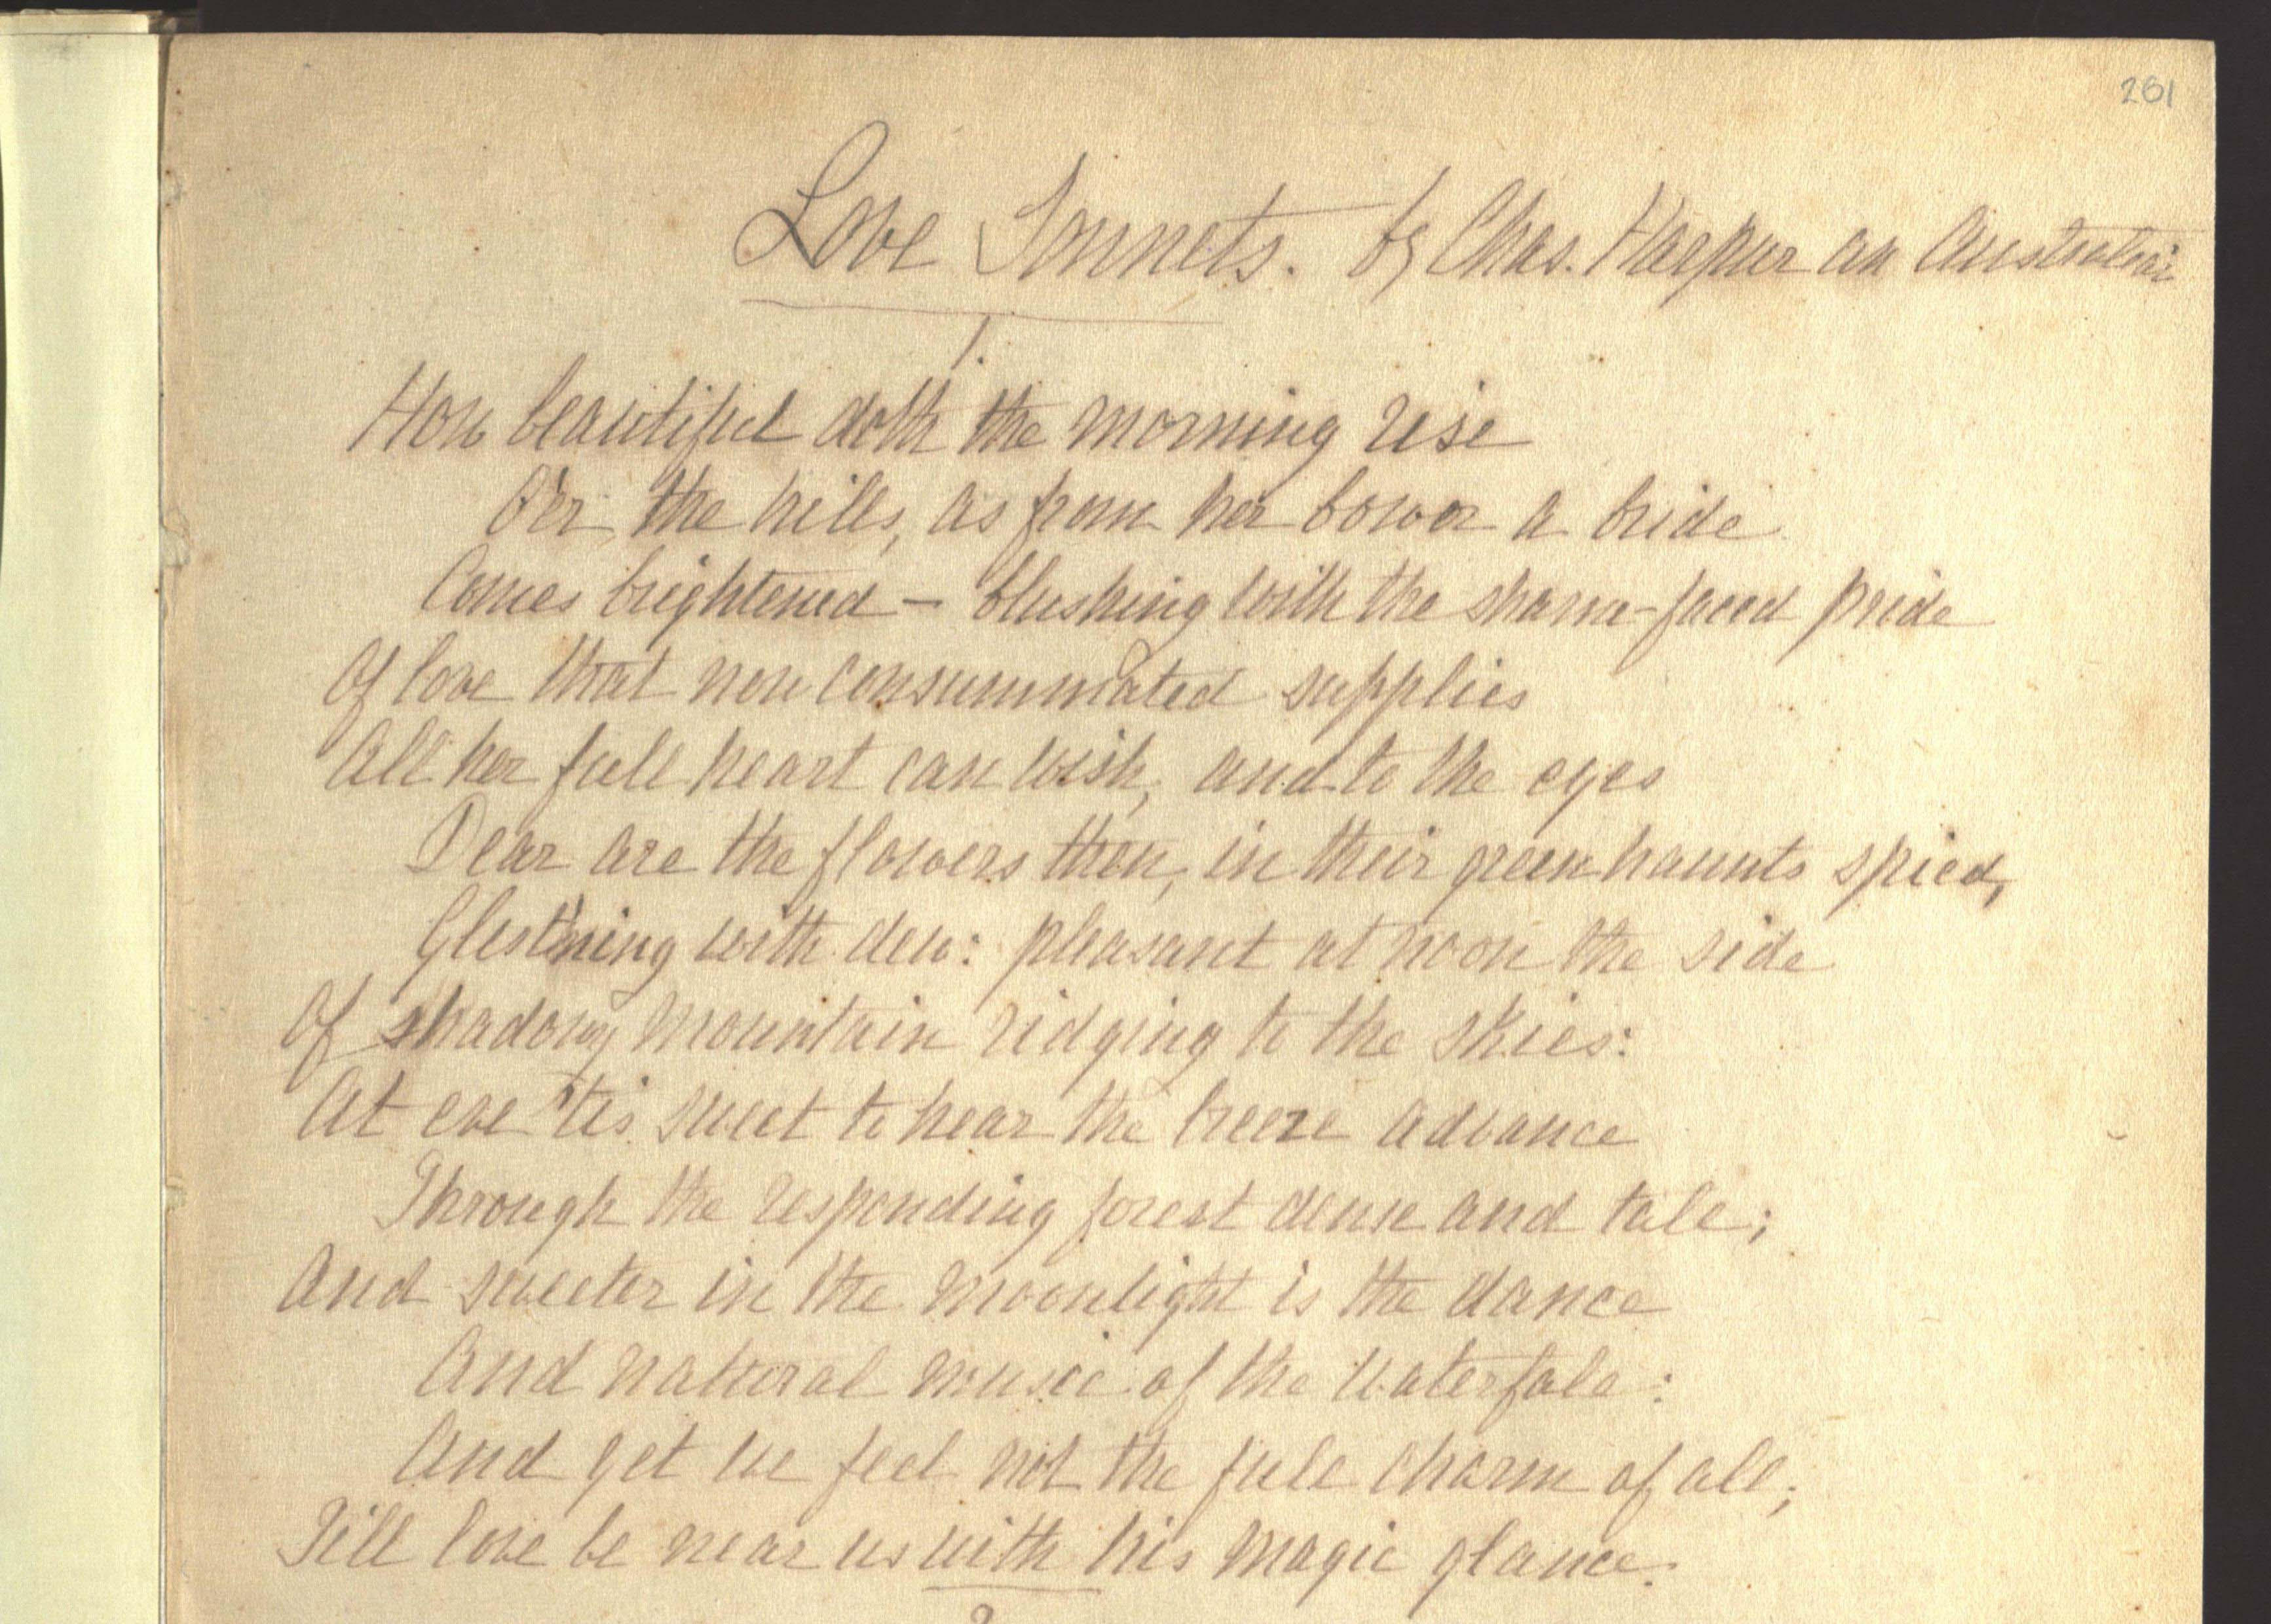 261
Love Sonnets. by Chas. Harpur an Australian
1.
How beautiful doth the morning rise
O'er the hills, as from her bower a bride
Comes brightened – blushing with the shame-faced pride
Of love that now consummated supplies
All her full heart can wish, and to the eyes
Dear are the flowers then, in their green haunts spied,
Glist'ning with dew: pleasant at noon the side
Of shadowy mountain ridging to the skies:
At eve 'tis sweet to hear the breeze advance
Through the responding forest dense and tall;
And sweeter in the moonlight is the dance
And natural music of the waterfall:
And yet we feel not the full charm of all,
Till love be near us with his magic glance.